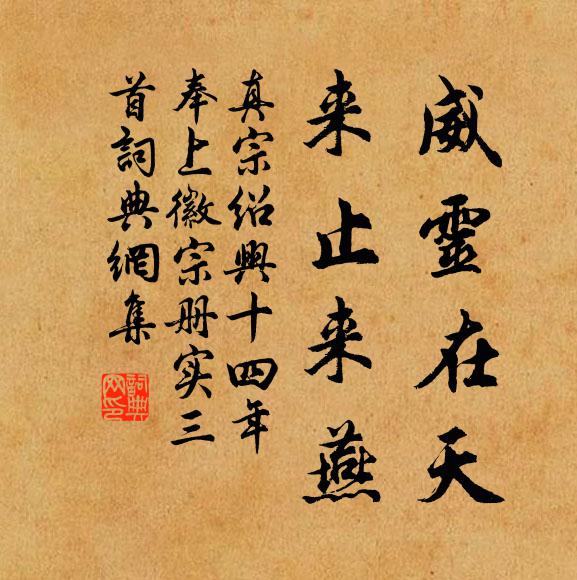 威靈在天
来止来燕
真宗绍興十四年
奉上徽宗册实三
首詞典網集
詞典网印